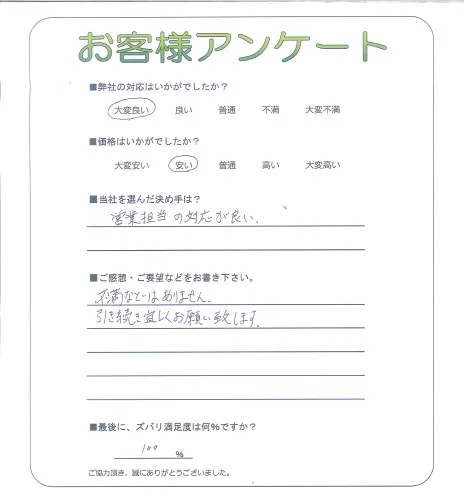 お客様アンケート
■弊社の対応はいかがでしたか?
大変良い 良い 普通 不満 大変不満
■価格はいかがでしたか?
大変安い 安い 普通 高い 大変高い
■当社を選んだ決め手は?
営業担当の対応が良い。
■ご感想・ご要望などをお書き下さい。
不満などはありません。
引き続き宜しくお願い致します。
■最後に、ズバリ満足度は何%ですか?
100 %
ご協力頂き、誠にありがとうございました。